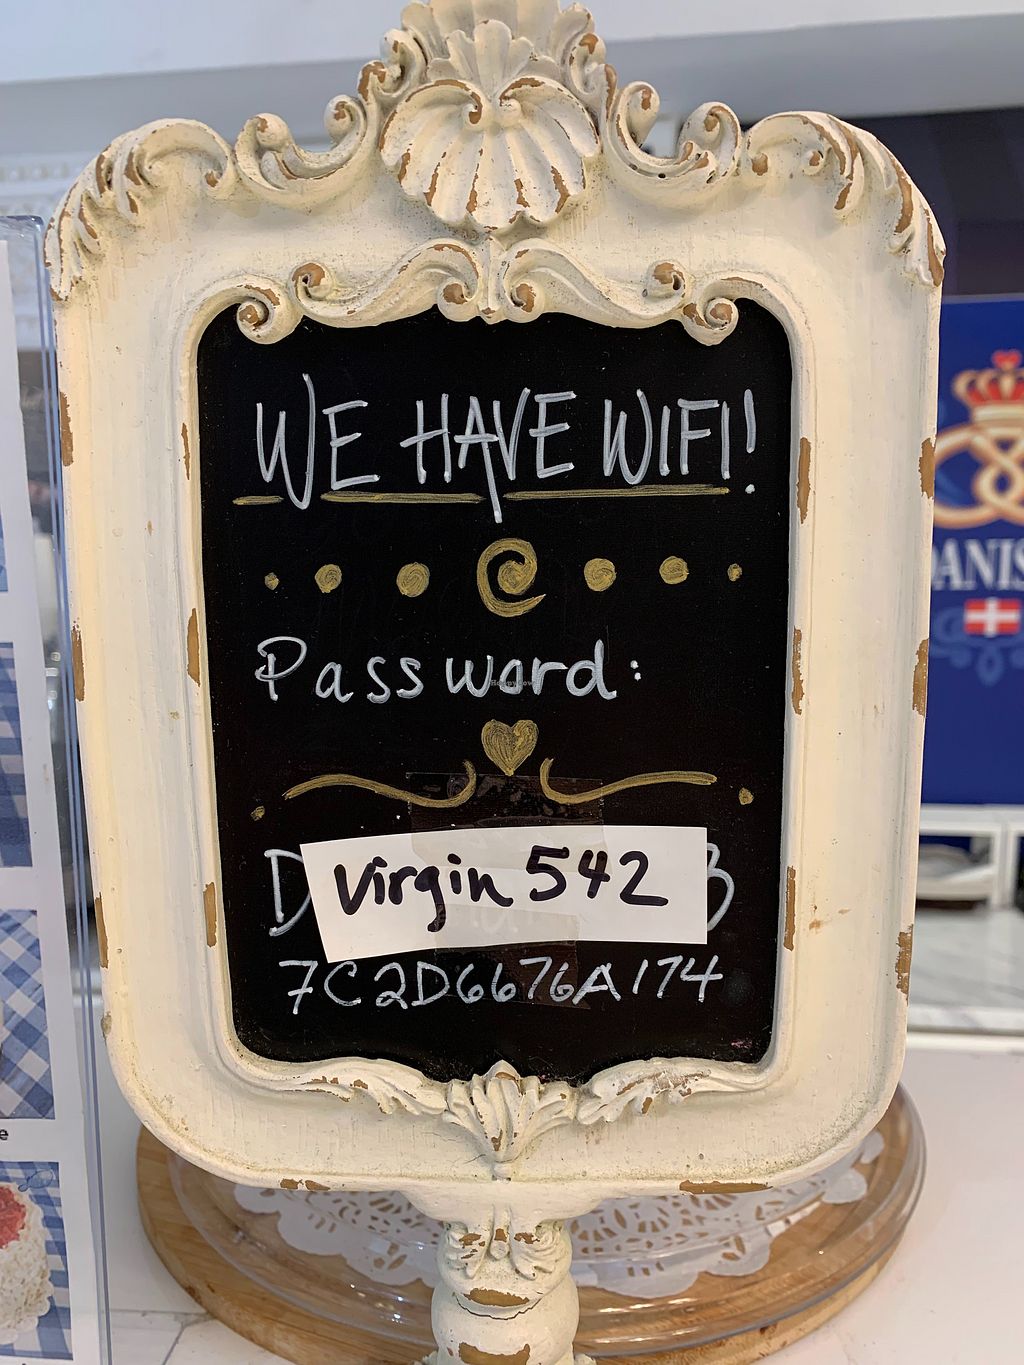 WE HAVE WIFI!
Password:
Virgin 542
7C2D6676A174
DANIS